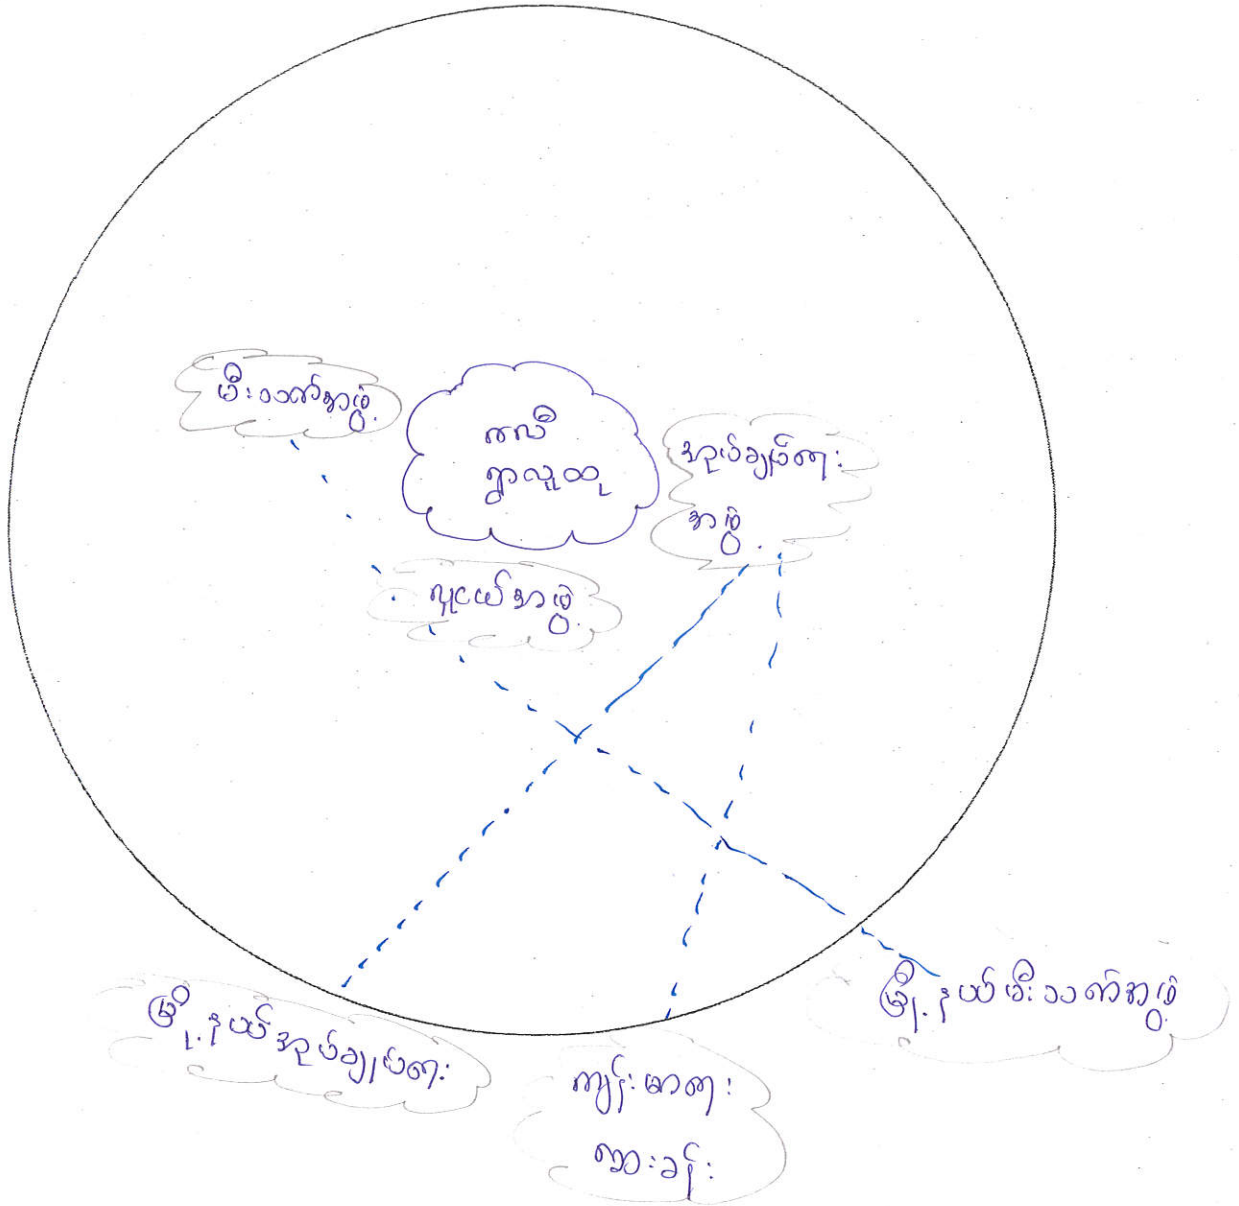 မီးသတ်အဖွဲ့
ကလိ
ရွာလူထု
အုပ်ချုပ်ရေး
အဖွဲ့
လူငယ်အဖွဲ့
မြို့နယ်အုပ်ချုပ်ရေး
ကျန်းမာရေး
ဆေးခန်း
မြို့နယ်မီးသတ်အဖွဲ့